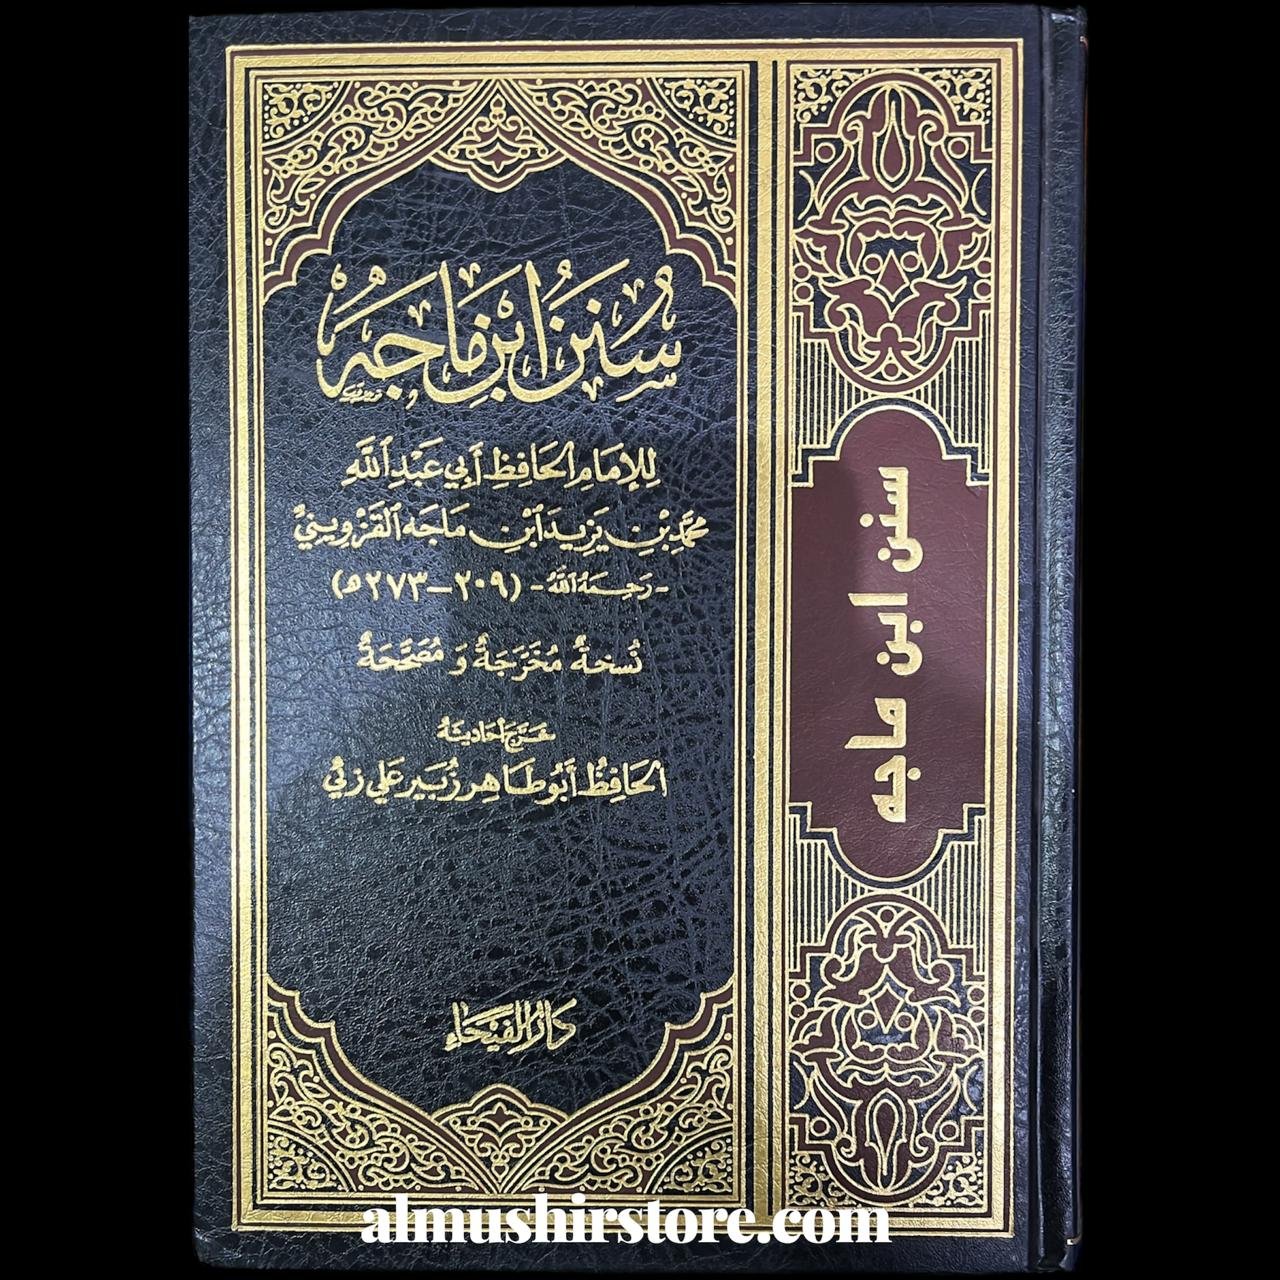 سُنَنُ ابْنِ مَاجَهْ
لِلإِمَامِ الحَافِظِ أَبِي عَبْدِ اللَّهِ
مُحَمَّدِ بْنِ يَزِيدَ ابْنِ مَاجَه القَزْوِينِيْ
- رَحِمَهُ اللَّهُ - (٢٠٩-٢٧٣ه)
نُسخَةٌ مُخَرَّجَةٌ وَ مُصَحَّحَةٌ
خَرَّجَ أَحَادِيثَهُ
الحَافِظُ أَبُو طَاهِر زُبَير عَلي زَئِي
دَارُ الفَيْحَاءِ
سنن ابن ماجه
almushirstore.com